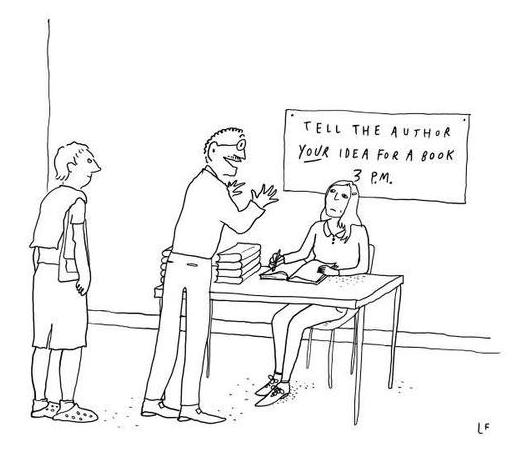 TELL THE AUTHOR
YOUR IDEA FOR A BOOK
3 P.M.
LF